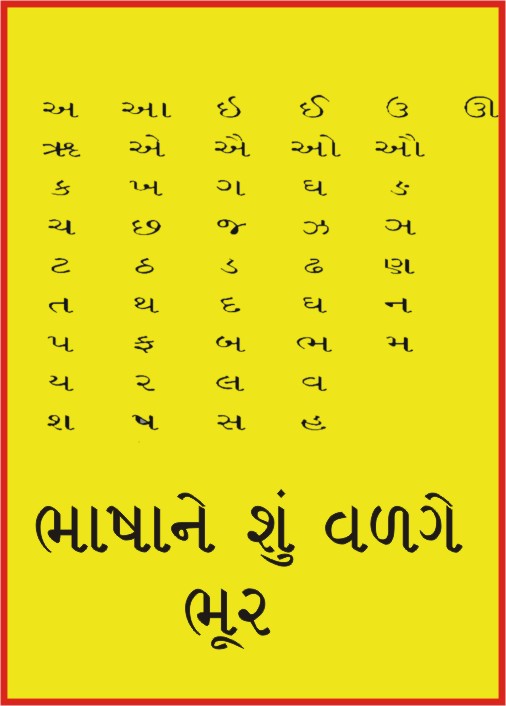 અ આ ઇ ઈ ઉ ઊ
ઋ એ ઐ ઓ ઔ
ક ખ ગ ઘ ઙ
ચ છ જ ઝ ઞ
ટ ઠ ડ ઢ ણ
ત થ દ ધ ન
પ ફ બ ભ મ
ય ર લ વ
શ ષ સ હ
ભાષાને શું વળગે
ભૂર